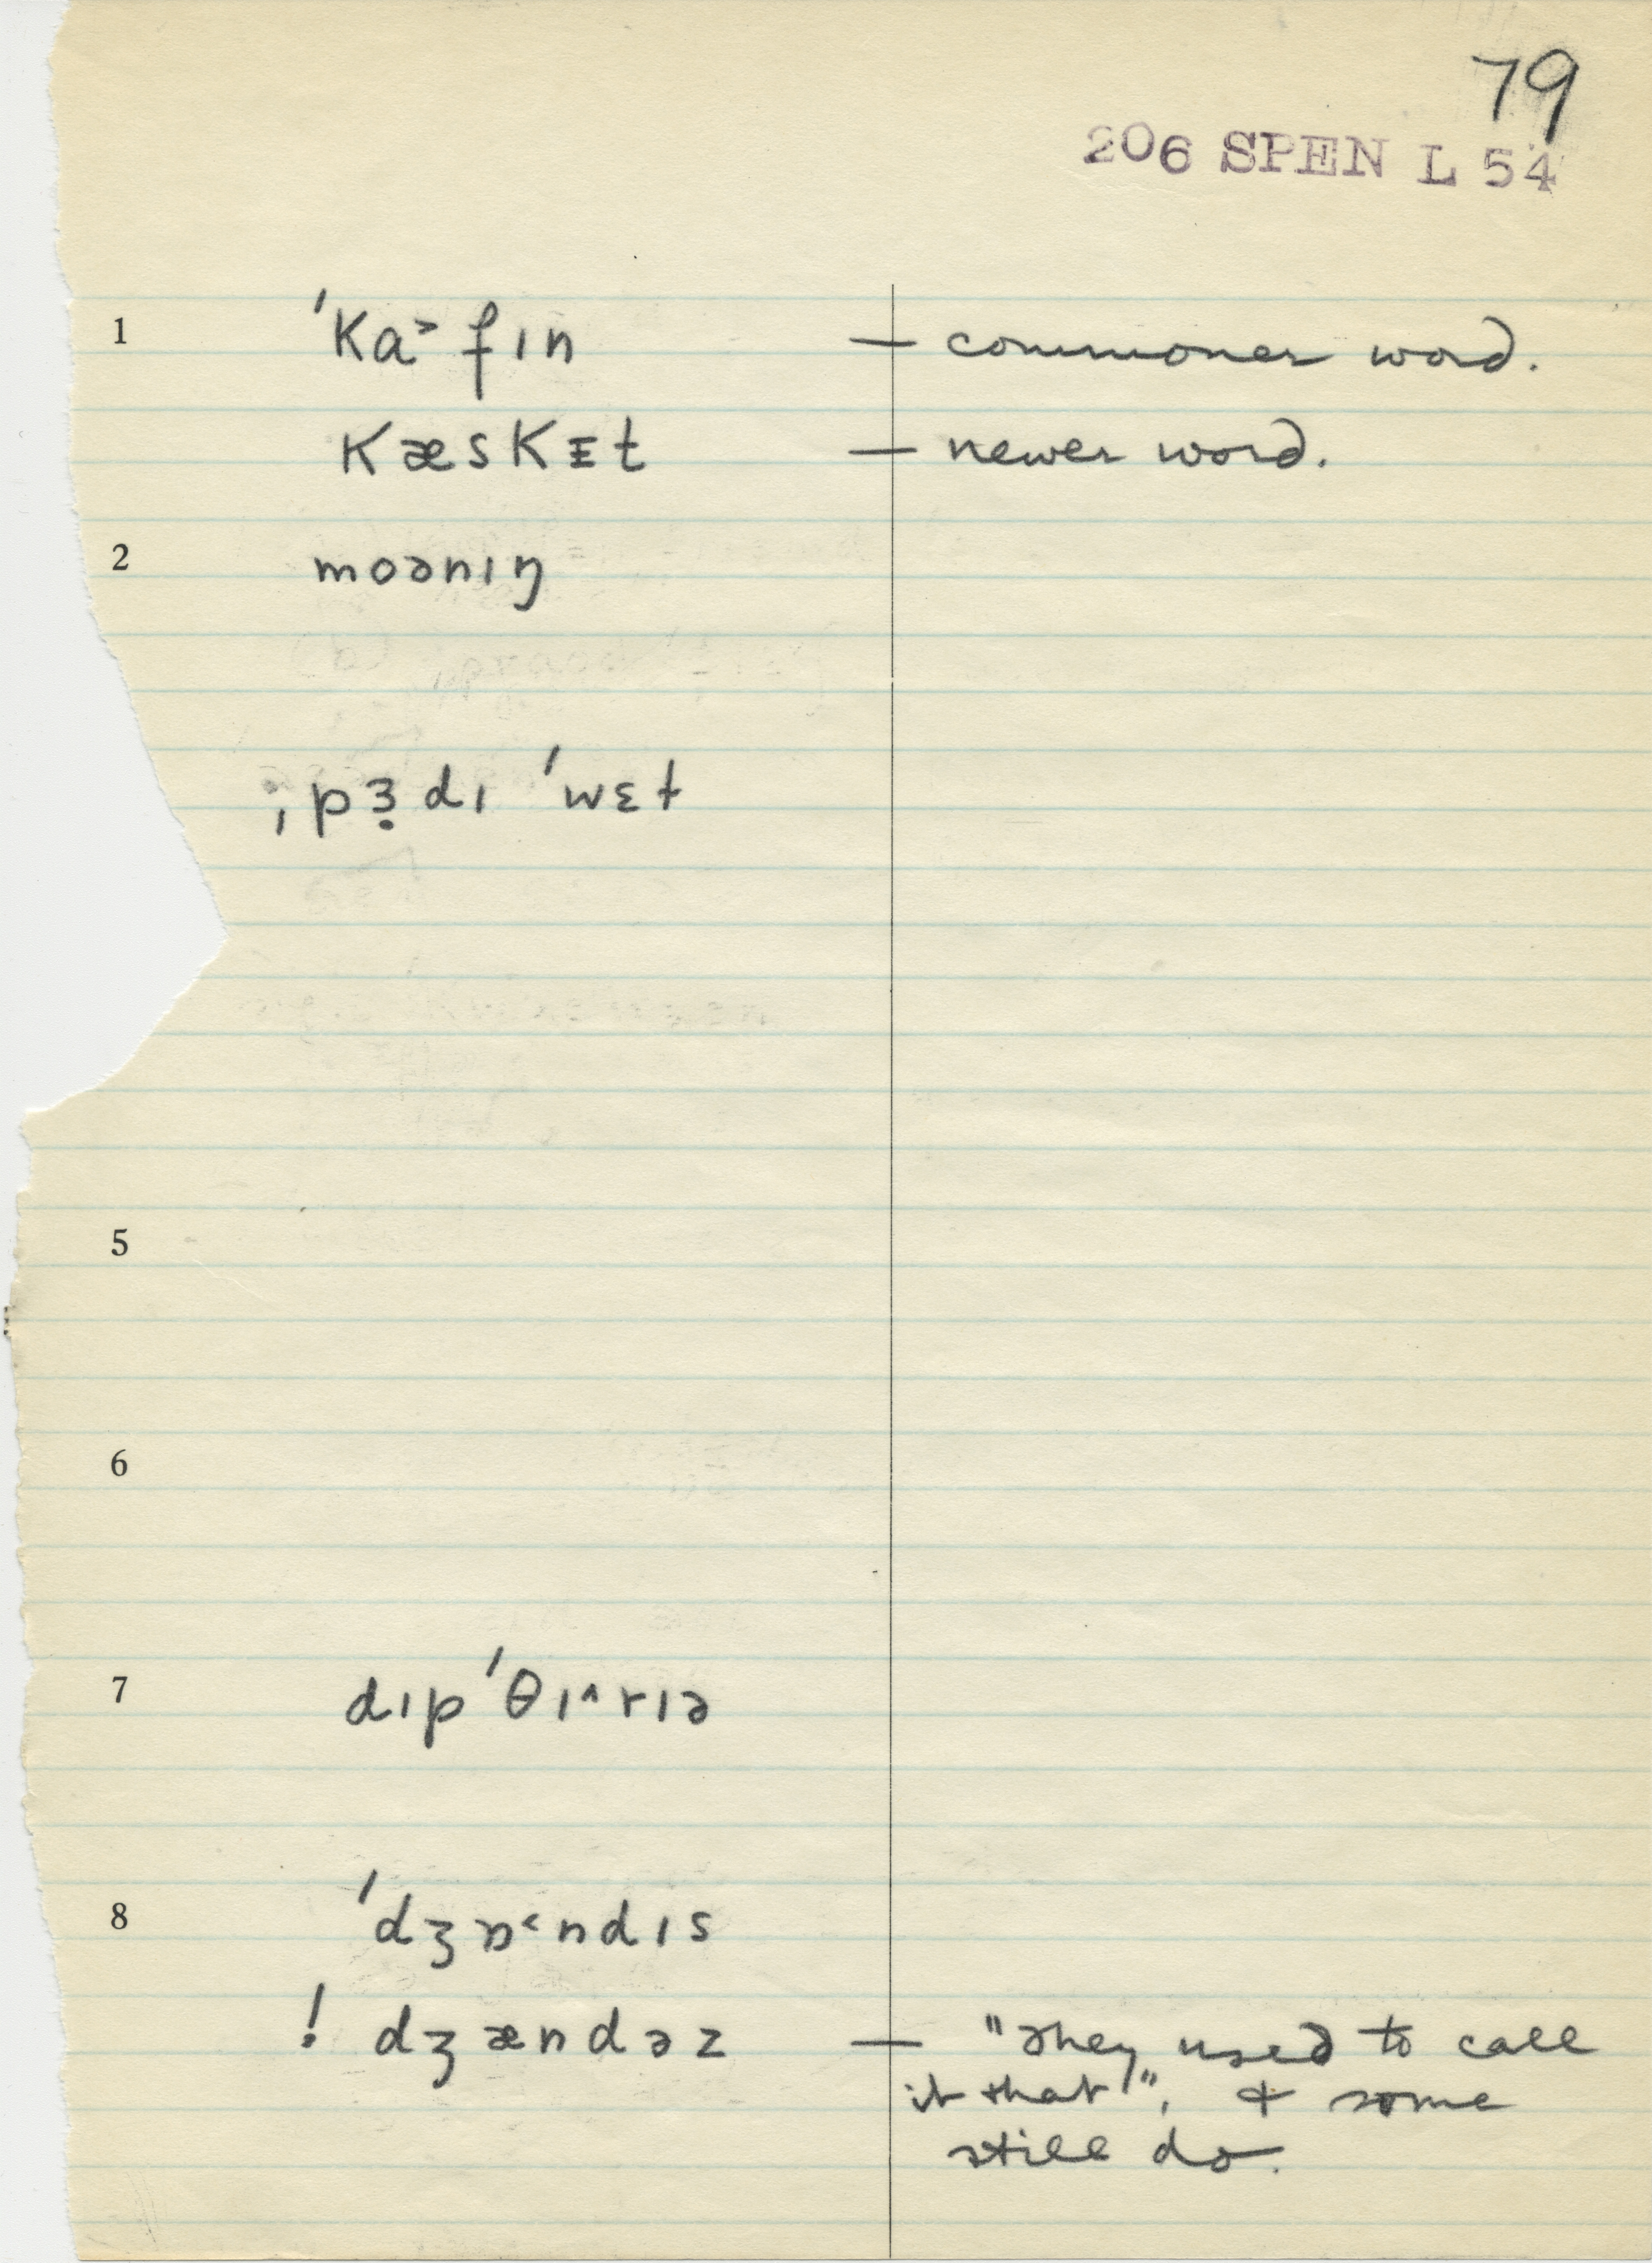 79
206 SPEN L 54
1 ˈka˃fɪn — commoner word.
kæskᵻt — newer word.
2 moənɪŋ
ˌpɜ̣dɪ ˈwɛt
5
6
7 dɪpˈθɪ˄rɪə
8 ˈdʒɒ˂ndɪs
! dʒændəz — "They used to call
it that", & some
still do.